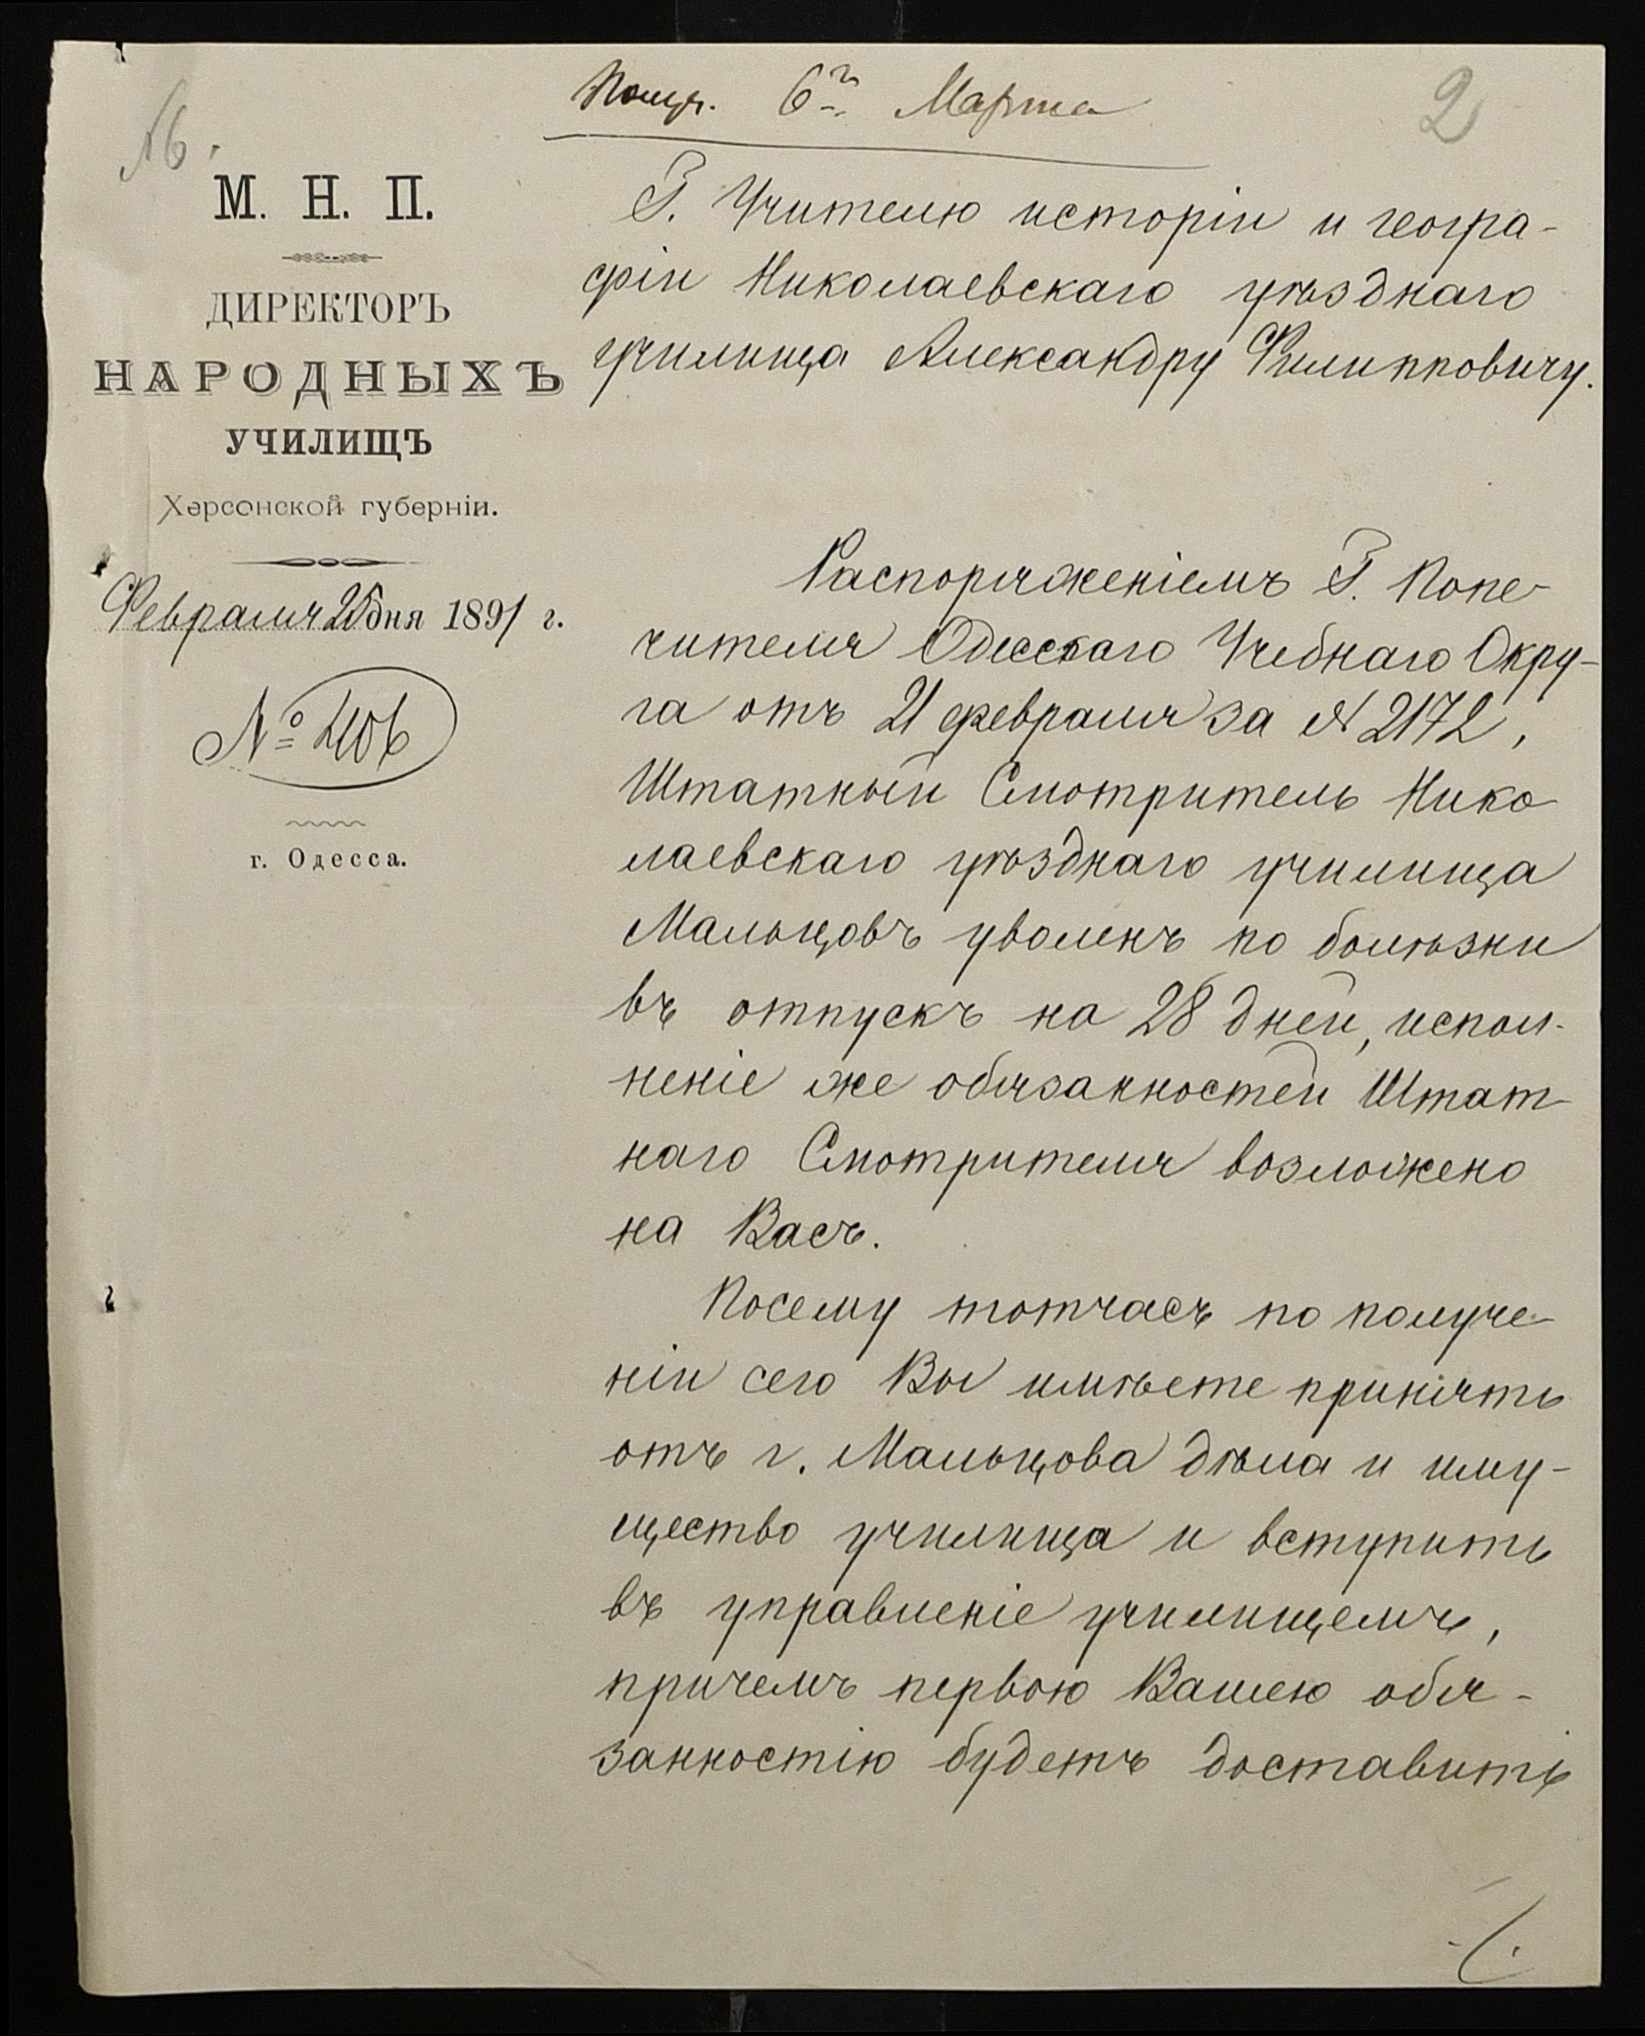 Получ. 6го Марта
2
М. Н. П.
ДИРЕКТОРЪ
НАРОДНЫХЪ
УЧИЛИЩЪ
Херсонской губерніи.
Февраля 25 дня 1891 г.
№ 406
г. Одесса.
Г. Учителю исторіи и геогра-
фіи Николаевскаго уѣзднаго
училища Александру Филипповичу.
Распоряженіемъ Г. Попе-
чителя Одесскаго Учебнаго Окру-
га отъ 21 февраля за № 2172,
Штатный Смотритель Нико-
лаевскаго уѣзднаго училища
Мальцовъ уволенъ по болѣзни
въ отпускъ на 28 дней, испол-
неніе же обязанностей Штат-
наго Смотрителя возложено
на Васъ.
Посему тотчасъ по получе-
ніи сего Вы имѣете принять
отъ г. Мальцова дѣла и иму-
щество училища и вступить
въ управленіе училищемъ,
причемъ первою Вашею обя-
занностію будетъ доставить